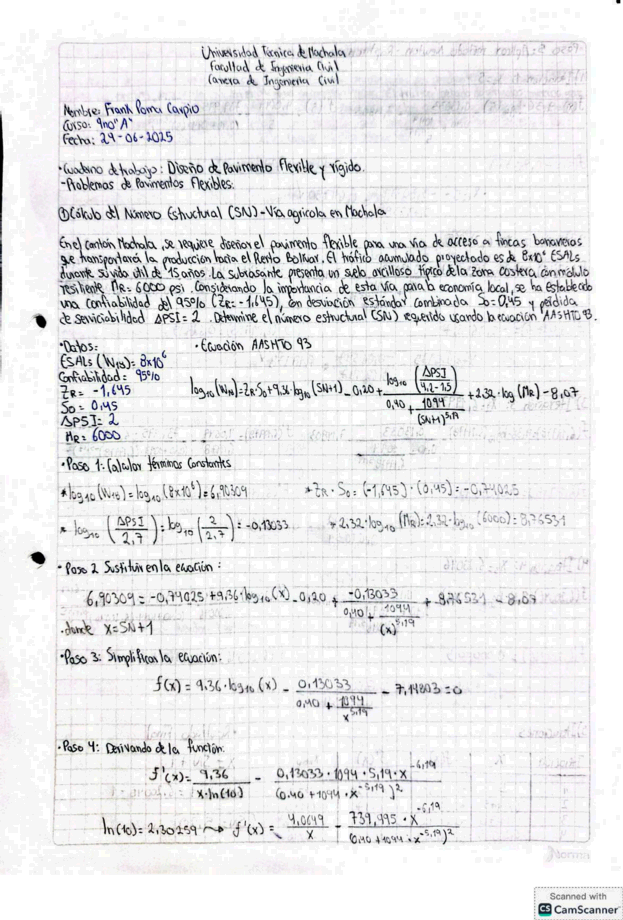 Universidad Técnica de Machala
Facultad de Ingeniería Civil
Carrera de Ingeniería Civil
Nombre: Frank Poma Carpio
Curso: 9no "A"
Fecha: 24-06-2025
• Cuaderno de trabajo: Diseño de Pavimento Flexible y rígido.
- Problemas de Pavimentos Flexibles:
① Cálculo del Número Estructural (SN) - Vía agrícola en Machala
En el cantón Machala, se requiere diseñar el pavimento flexible para una vía de acceso a fincas bananeras
que transportará la producción hacia el Puerto Bolívar. El tráfico acumulado proyectado es de 8x10⁶ ESALs
durante su vida útil de 15 años. La subrasante presenta un suelo arcilloso típico de la zona costera, con módulo
resiliente MR = 6000 psi. Considerando la importancia de esta vía para la economía local, se ha establecido
una confiabilidad del 95% (ZR = -1,645), con desviación estándar combinada So = 0,45 y pérdida
de serviciabilidad ΔPSI = 2. Determine el número estructural (SN) requerido usando la ecuación AASHTO 93.
• Datos: • Ecuación AASHTO 93
ESALs (W18) = 8x10⁶
Confiabilidad = 95%
ZR = -1,645
So = 0,45
ΔPSI = 2
MR = 6000
log10 (W18) = ZR·So + 9,36·log10 (SN+1) - 0,20 + log10 (ΔPSI / 4,2-1,5) / (0,40 + 1094 / (SN+1)^5,19) + 2,32·log (MR) - 8,07
• Paso 1: Calcular términos constantes
* log10 (W18) = log10 (8x10⁶) = 6,90309 * ZR · So = (-1,645) · (0,45) = -0,74025
* log10 (ΔPSI / 2,7) = log10 (2 / 2,7) = -0,13033 * 2,32·log10 (MR) = 2,32·log10 (6000) = 8,76531
• Paso 2 Sustituir en la ecuación:
6,90309 = -0,74025 + 9,36·log10 (x) - 0,20 + -0,13033 / (0,40 + 1094 / (x)^5,19) + 8,76531 - 8,07
. donde x = SN+1
• Paso 3: Simplificar la ecuación:
f(x) = 9,36·log10 (x) - 0,13033 / (0,40 + 1094 / x^5,19) - 7,14803 = 0
• Paso 4: Derivando de la función:
f'(x) = 9,36 / x·ln(10) - 0,13033 · 1094 · 5,19 · x^-6,19 / (0.40 + 1094 · x^-5,19)²
ln(10) = 2,30259 ⇝ f'(x) = 4,0649 / x - 739,995 · x^-6,19 / (0,40 + 1094 · x^-5,19)²
Scanned with
CS CamScanner